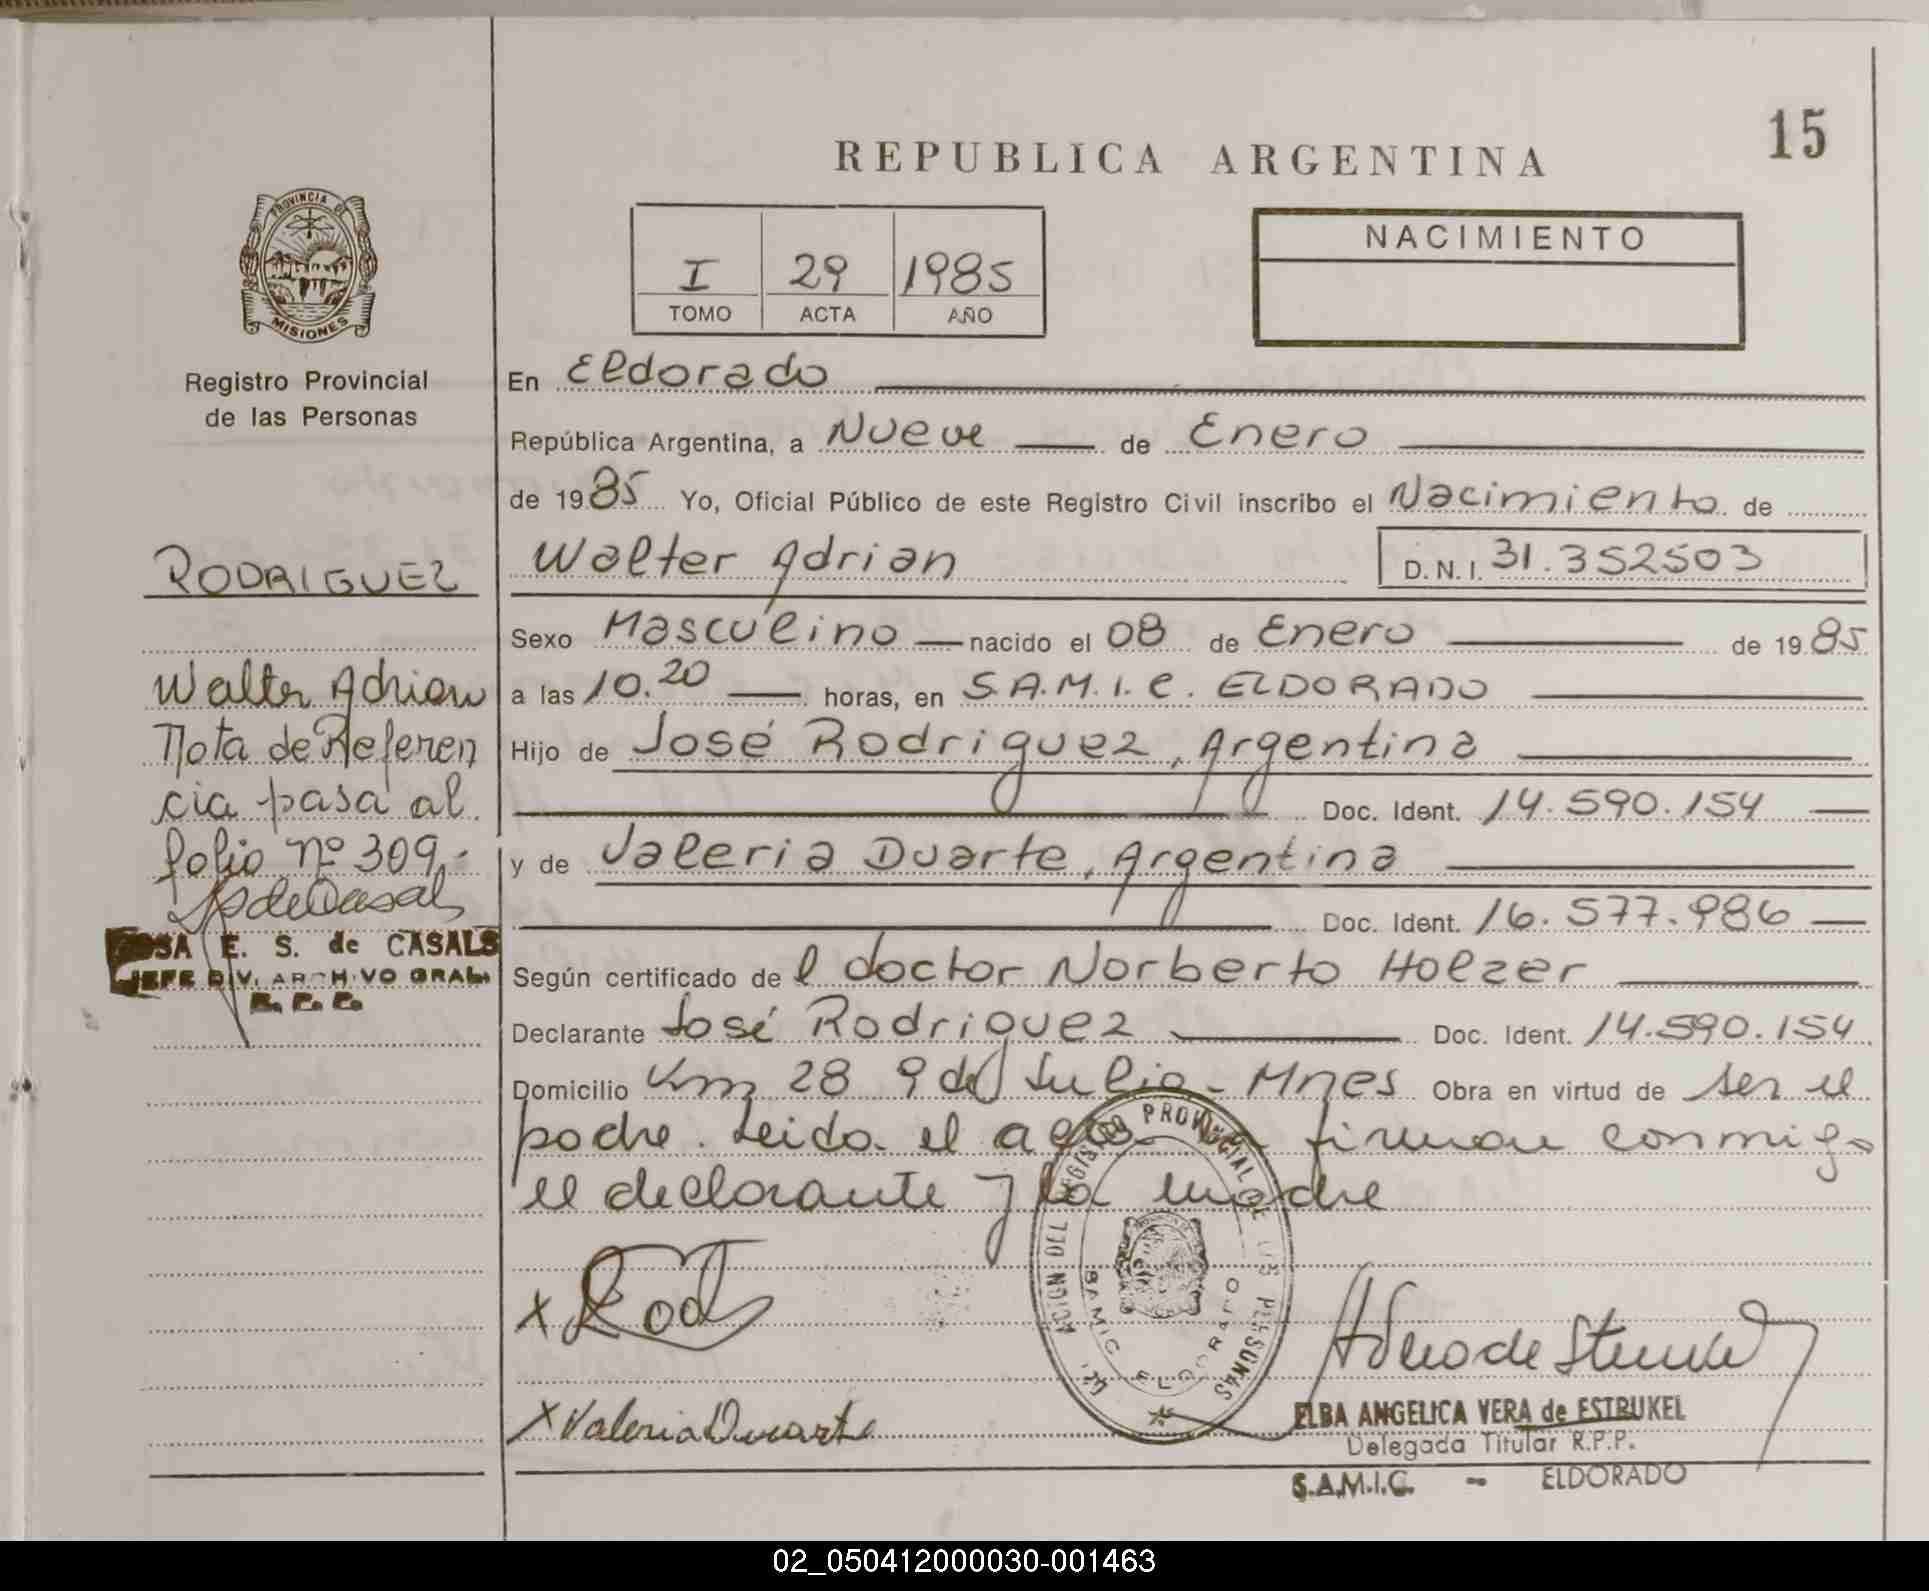 15
REPUBLICA ARGENTINA
PROVINCIA DE
MISIONES
Registro Provincial
de las Personas
I 29 1985
TOMO ACTA AÑO
NACIMIENTO
En Eldorado
República Argentina, a Nueve de Enero
de 1985 Yo, Oficial Público de este Registro Civil inscribo el Nacimiento de
Walter Adrian D.N.I. 31.352503
Sexo Masculino nacido el 08 de Enero de 1985
a las 10.20 horas, en S.A.M.I.C. ELDORADO
Hijo de José Rodriguez, Argentina
Doc. Ident. 14.590.154
y de Valeria Duarte, Argentina
Doc. Ident. 16.577.986
Según certificado de l doctor Norberto Holzer
Declarante José Rodriguez Doc. Ident. 14.590.154
Domicilio Km 28 9 de Julio - Mnes Obra en virtud de ser el
padre. Leido el acta firman conmigo
el declarante y la madre
RODRIGUEZ
Walter Adrian
Nota de Referen
cia pasa al
folio nº 309.-
E. S. de CASALS
JEFE DIV. ARCHIVO GRAL.
R. P. P.
X Rod
X Valeria Duarte
DEL REGISTRO PROVINCIAL DE LAS PERSONAS
SAMIC ELDORADO
ELBA ANGELICA VERA de ESTRUKEL
Delegada Titular R.P.P.
S.A.M.I.C. - ELDORADO
02_050412000030-001463